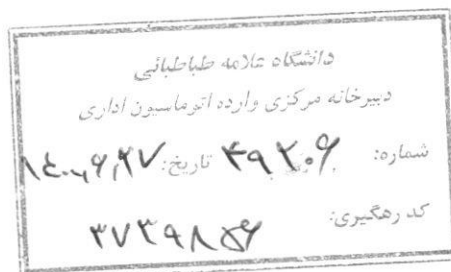 دانشگاه علامه طباطبائی
دبیرخانه مرکزی وارده اتوماسیون اداری
شماره: ۴۹۲۰۶ تاریخ:
کد رهگیری: ۳۷۳۹۸۵۶